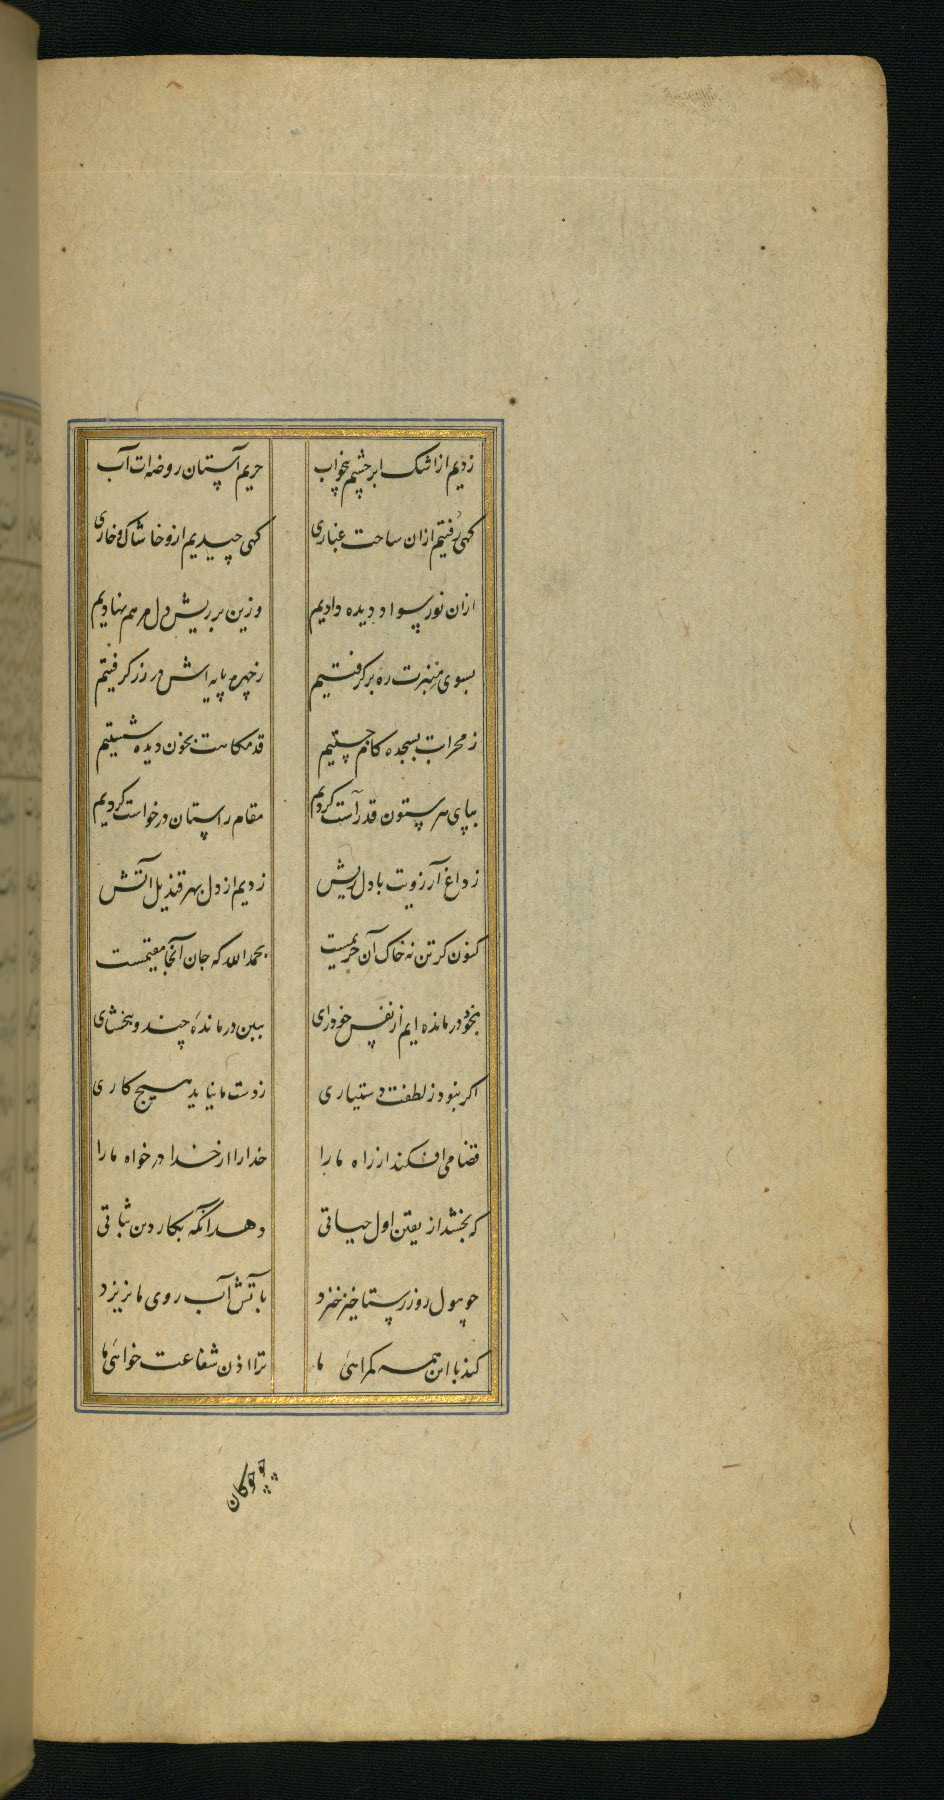 زدیم از اشک ابر چشم بیخواب حریم آستان روضه ات آب
کهی رفتیم ازان ساحت غباری کهی چیدیم ازو خاشاک و خاری
ازان نور سواد دیده دادیم وزین بر ریش دل مرهم نهادیم
بسوی منبرت ره بر کرفتیم ز چهره پایه اش در زر کرفتیم
ز محرابت بسجده کام جستیم قدمکاهت بخون دیده شستیم
بپای هر ستون قد راست کردیم مقام راستان درخواست کردیم
ز داغ آرزویت با دل ریش زدیم از دل بهر قندیل آتش
کنون کر تن نه خاک آن حریمست بحمد الله که جان آنجا مقیمست
بخود درمانده ایم از نفس خودرای ببین درمانده چند و ببخشای
اکر نبود ز لطفت دستیاری ز دست ما نیاید هیچ کاری
قضا می افکند از راه ما را خدا را از خدا درخواه ما را
که بخشد از یقین اول حیاتی دهد آنکه بکار دین ثباتی
چو هول روز رستاخیز خیزد بآتش آب روی ما نریزد
کند با این همه کمراهی ما ترا اذن شفاعت خواهی ما
چو چوکان